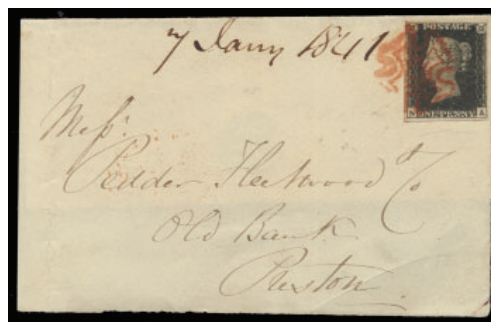 7 Jany 1841
POSTAGE
ONE PENNY
A
Messrs
Pedder Fleetwood & Co
Old Bank
Preston